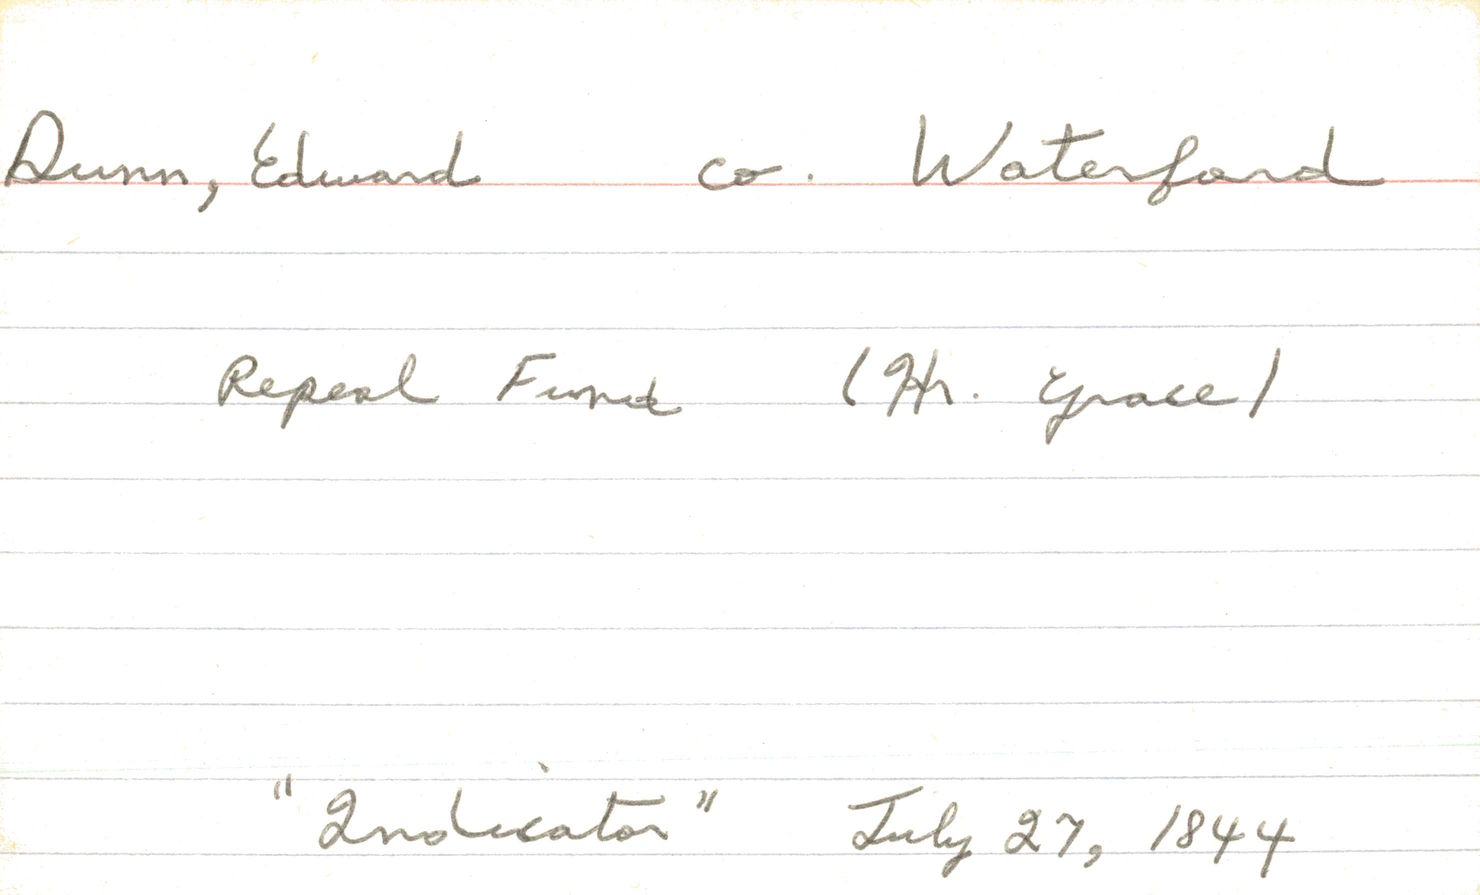 Dunn, Edward co. Waterford
Repeal Fund (Hr. Grace)
"Indicator" July 27, 1844